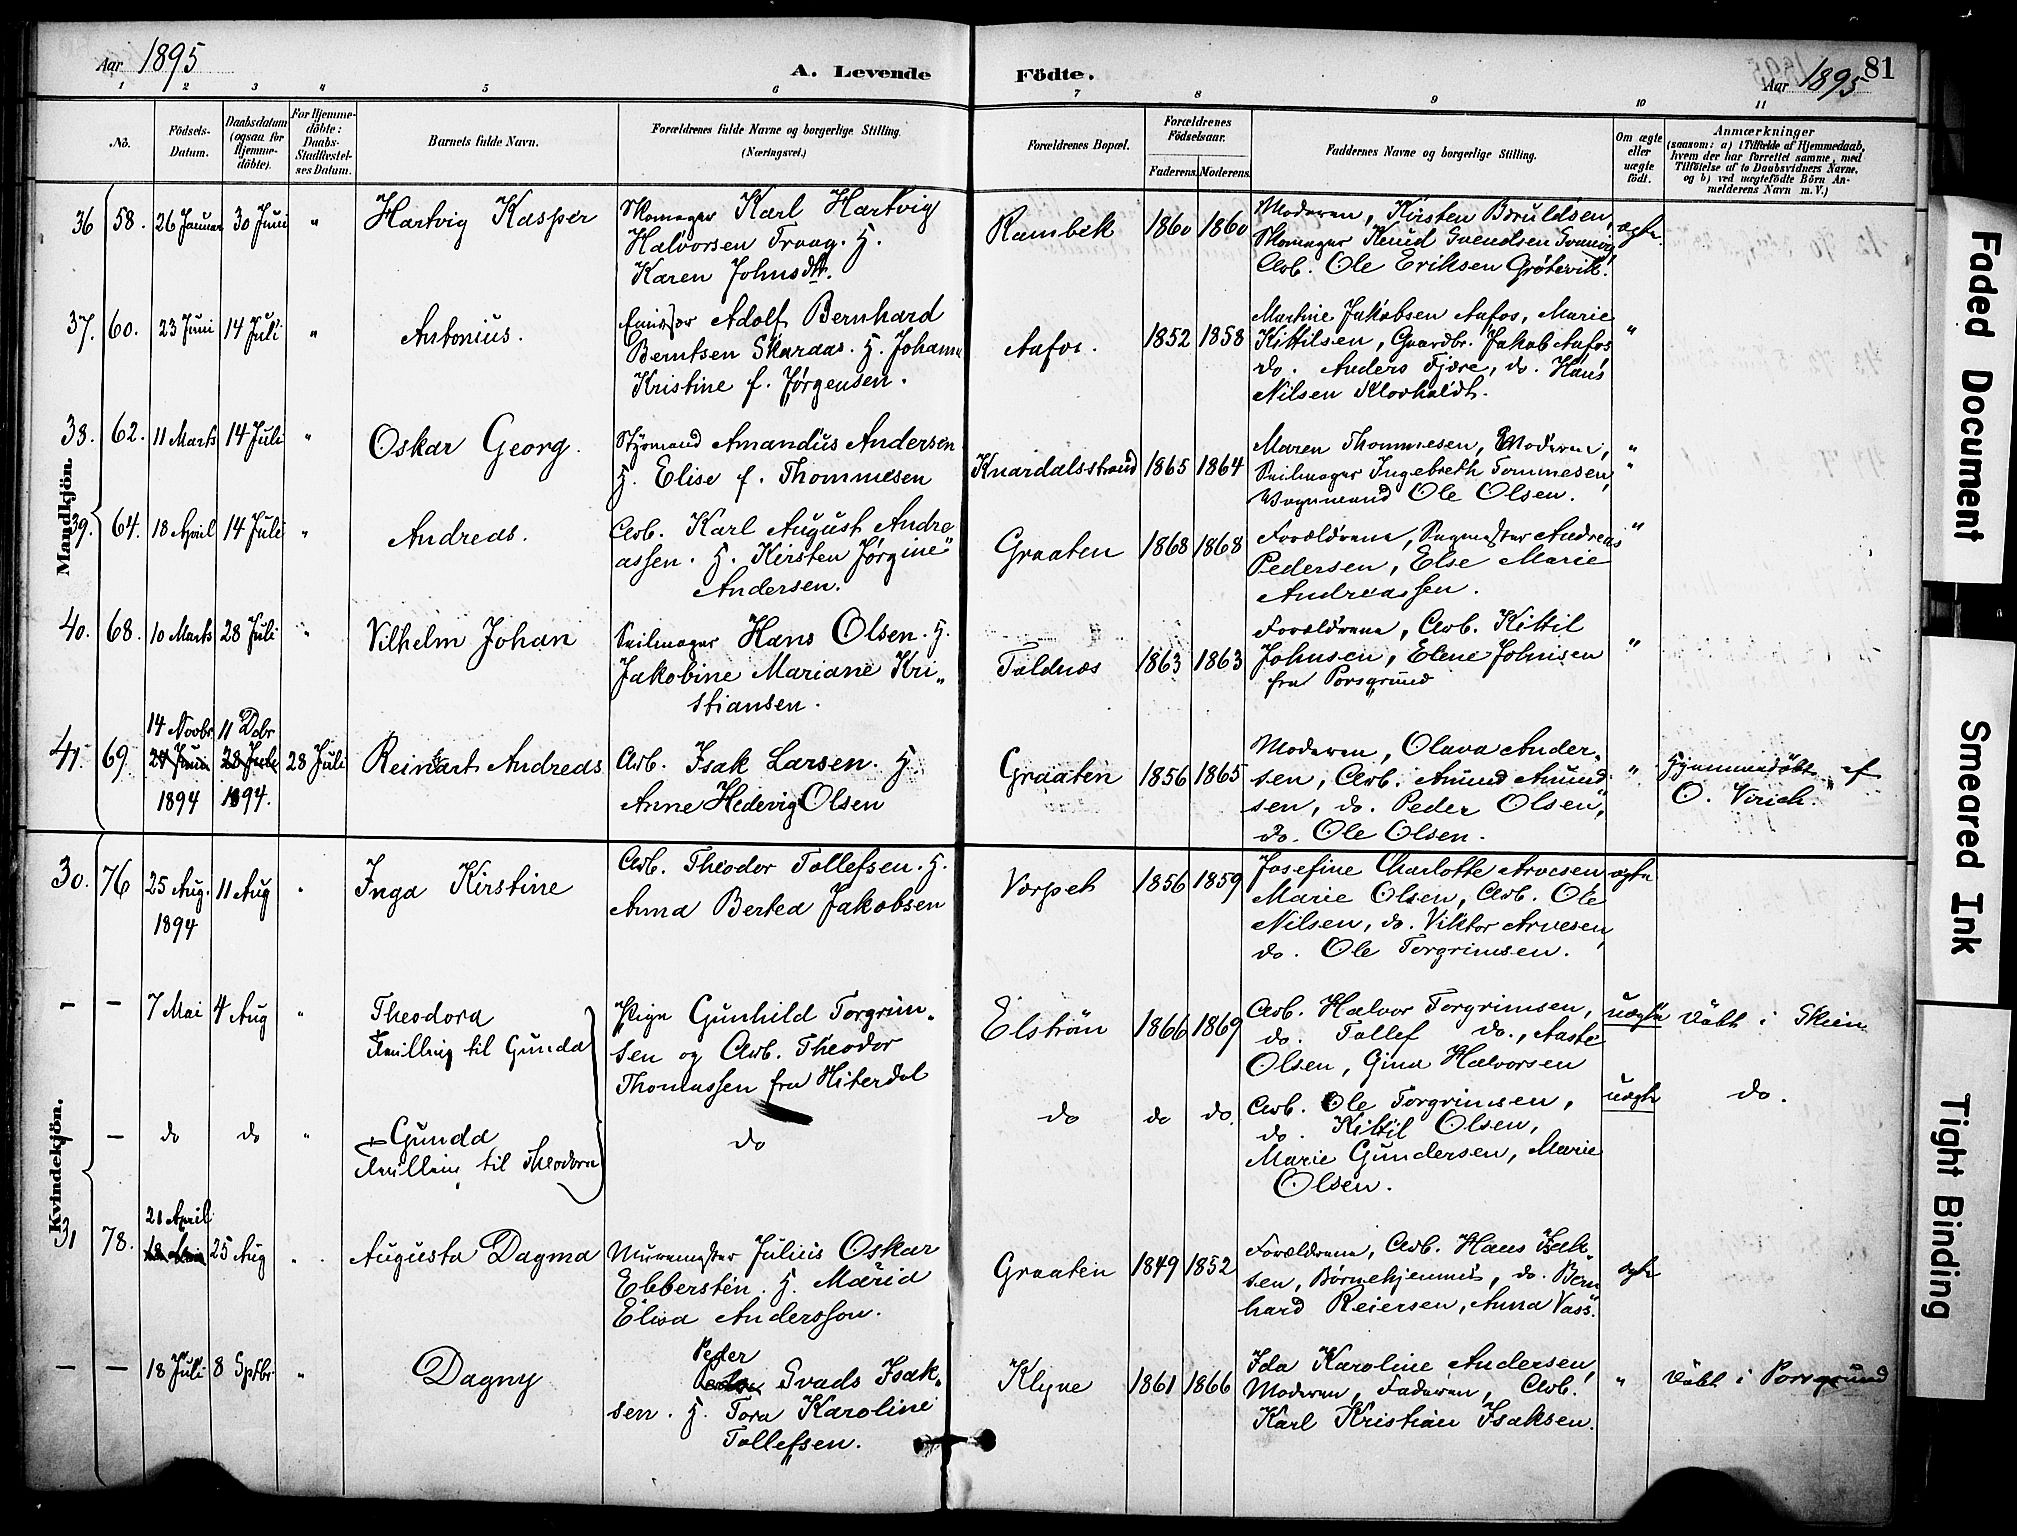 Aar 1895
A. Levende Födte.
Aar 1895
81
1 2 3 4 5 6 7 8 9 10 11
No.
Födsels-Datum.
Daabsdatum (ogsaa for Hjemme-döbte).
For Hjemme-döbte: Daabs-Stadfæstel-ses Datum.
Barnets fulde Navn.
Forældrenes fulde Navne og borgerlige Stilling. (Næringsvei.)
Forældrenes Bopæl.
Forældrenes Födselsaar.
Faderens. Moderens.
Faddernes Navne og borgerlige Stilling.
Om ægte eller uægte födt.
Anmærkninger
(saasom: a) i Tilfælde af Hjemmedaab, hvem der har forrettet samme, med Tilföielse af to Daabsvidners Navne, og b) ved uægtefödte Börn An-melderens Navn m. V.)
Mandkjön.
36 58. 26 Januar 30 Juni " Hartvig Kasper
Skomager Karl Hartvig
Halvorsen Traag. H.
Karen Johnsdtr.
Rambek 1860 1860
Moderen, Kirsten Børuldsen,
Skomager Knud Svendsen
Arb. Ole Eriksen Grøtevik.
ægte.
37. 60. 23 Juni 14 Juli " Antonius.
Adolf Bernhard
Berntsen Skaraas. H. Johanne
Kristine f. Jørgensen.
Aafos. 1852 1858
Martine Jakobsen Aafos, Marie
Kittilsen, Gaardbr. Jakob Aafos
do. Anders Fjære, do. Hans
Nilsen Klovholdt.
"
38. 62. 11 Marts 14 Juli " Oskar Georg.
Styrmand Amandus Andersen
H. Elise f. Thommesen
Knardalsstrand 1865 1864
Maren Thommesen, Moderen,
Seilmager Ingebreth Tommesen,
Vognmand Ole Olsen.
" "
39. 64. 18 April 14 Juli " Andreas.
Arb. Karl August Andre
assen. H. Kirsten Jørgine
Andersen.
Graaten 1868 1868
Forældrene, Sagmester Andreas
Pedersen, Else Marie
Andreassen.
"
40. 68. 10 Marts 28 Juli " Vilhelm Johan
Seilmager Hans Olsen. H.
Jakobine Mariane Kri„
stiansen.
Toldnæs 1863 1863
Forældrene, Arb. Kittil
Johnsen, Elene Johnsen
fra Porsgrund
"
41. 69 14 Novbr 1894 11 Dcbr 1894. 28 Juli Reinhart Andreas
Arb. Isak Larsen. H.
Anne Hedevig Olsen
Graaten 1856 1865
Moderen, Olava Ander„
sen, Arb. Amund Amund
sen, do. Peder Olsen,
do. Ole Olsen.
"
Hjemmedøbt af
O. Virich.
Kvindekjön.
30. 76 25 Aug. 1894 11 Aug " Inga Kirstine
Arb. Theodor Tollefsen. H.
Anna Bertea Jakobsen
Vorpet 1856 1859
Josefine Charlotte Arvesen
Marie Olsen, Arb. Ole
Nilsen, do. Viktor Arvesen,
do. Ole Torgrimsen.
ægte
- - 7 Mai 4 Aug " Theodora
Tvilling til Gunda
Pige Gunhild Torgrim„
sen og Arb. Theodor
Thomassen fra Hiterdal
Elstrøm 1866 1869
Arb. Halvor Torgrimsen,
do. Tollef do., Aaste
Olsen, Gina Halvorsen
uægte
Døbt i Skien
- - do do " Gunda
Tvilling til Theodora
do
do do do.
Arb. Ole Torgrimsen,
do. Kittil Olsen,
Marie Gundersen, Marie
Olsen.
uægte
do.
31 78. 21 April 25 Aug " Augusta Dagma
Murermester Julius Oskar
Ebberstén. H. Maria
Elisa Andersson.
Graaten 1849 1852
Forældrene, Arb. Hans Isak„
sen, Børnehjemmet, do. Bern
hard Reiersen, Anna Vass.
ægte
- - 18 Juli 8 Sptbr. " Dagny
Peder
Svads Isak„
sen. H. Tora Karoline
Tollefsen.
Klyve 1861 1866
Ida Karoline Andersen,
Moderen, Faderen, Arb.
Karl Kristian Isaksen.
"
Døbt i Porsgrund
Faded Document
Smeared Ink
Tight Binding